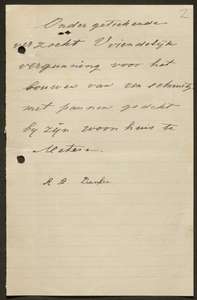 2
Ondergeteekende
verzoekt Vriendelijk
vergunning voor het
bouwen van een schuurtje
met pannen gedekt
bij zijn woonhuis te
Meteren